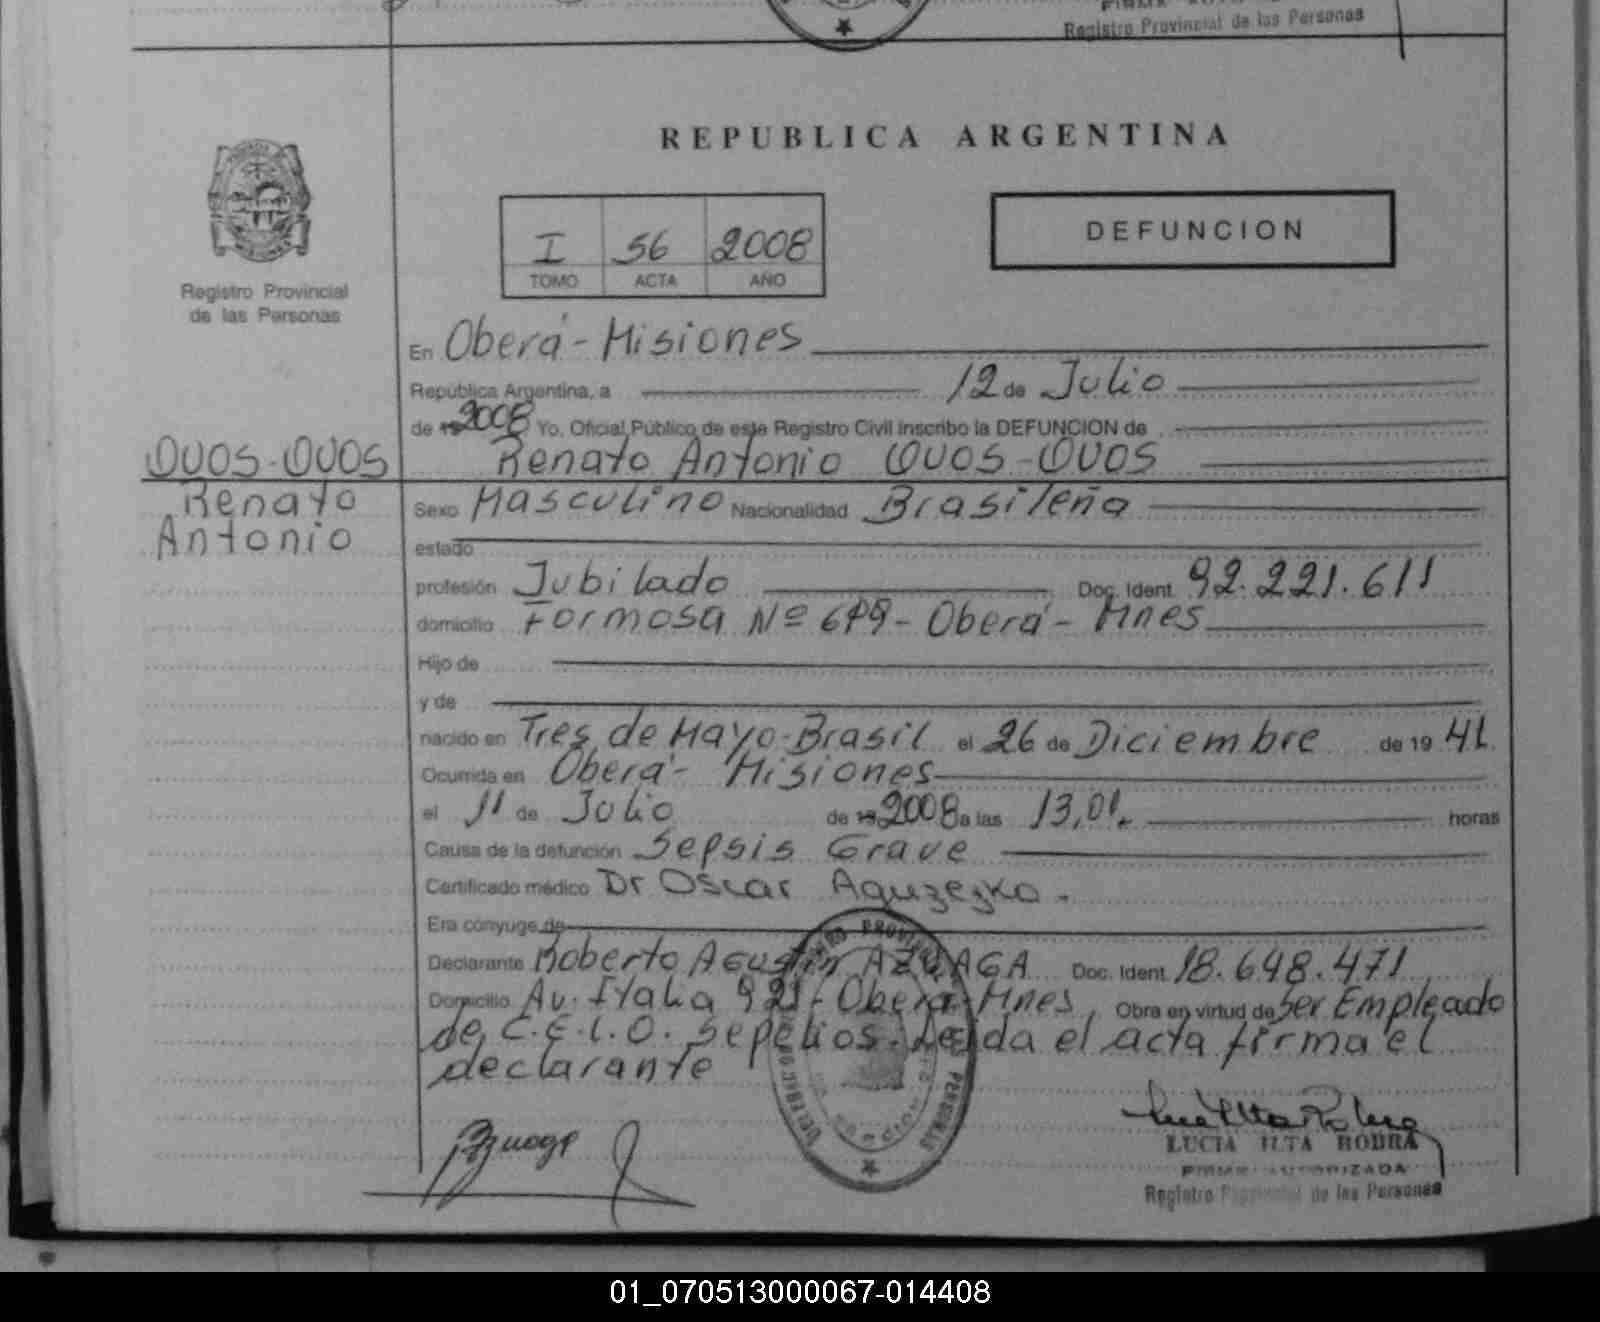 Registro Provincial de las Personas
REPUBLICA ARGENTINA
I 56 2008
TOMO ACTA AÑO
DEFUNCION
Registro Provincial
de las Personas
En Oberá - Misiones
República Argentina, a 12 de Julio
de 19 2008 Yo, Oficial Público de este Registro Civil inscribo la DEFUNCION de
OVOS-OVOS
Renato
Antonio
Renato Antonio OVOS-OVOS
Sexo Masculino Nacionalidad Brasileña
estado
profesión Jubilado Doc. Ident. 92.221.611
domicilio Formosa Nº 679 - Oberá - Mnes
Hijo de
y de
nacido en Tres de Mayo-Brasil el 26 de Diciembre de 19 41.
Ocurrida en Oberá - Misiones
el 11 de Julio de 19 2008 a las 13,01. horas
Causa de la defunción Sepsis Grave
Certificado médico Dr Oscar
Era cónyuge de
Declarante Roberto Agustín AZUAGA Doc. Ident. 18.648.471
Domicilio Av. Italia 921 - Oberá - Mnes Obra en virtud de Ser Empleado
de C.E.L.O. Sepelios. Leída el acta firma el
declarante
LUCIA ILTA RODRA
FIRMA AUTORIZADA
Registro Provincial de las Personas
01_070513000067-014408